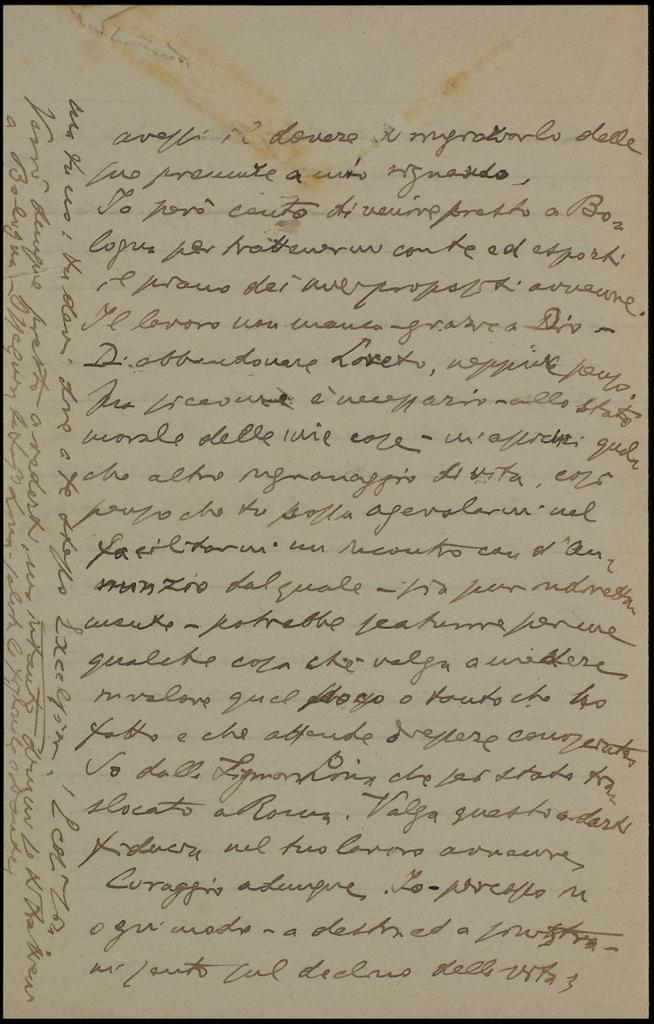 avessi il dovere di ringraziarlo delle
sue premure a mio riguardo,
Io però conto di venire presto a Bo=
logna per trattenermi con te ed esporti
il piano dei miei propositi avvenire.
Il lavoro non manca - grazie a Dio -
Di abbandonare Loreto, neppure penso.
Ma siccome è necessario - allo stato
morale delle mie cose - mi aspichi qual
che altro ingranaggio di vita, così
penso che tu possa agevolarmi nel
facilitarmi un incontro con d'An=
nunzio dal quale - sia pur indiretta
mente - potrebbe scaturire per me
qualche cosa che valga a mettere
in valore quel poco o tanto che ho
fatto e che attende d'essere conosciuto
So dalla Signora che sei stato tra
slocato a Roma. Valga questo a darti
fiducia nel tuo lavoro avvenire
Coraggio adunque. Io - percosso in
ogni modo - a destra ed a sinistra -
mi sento sul declino della vita,
ma tu no: tu devi dire a te stesso Excelsior!
Verrò dunque presto a vederti, un intanto
a Bologna -